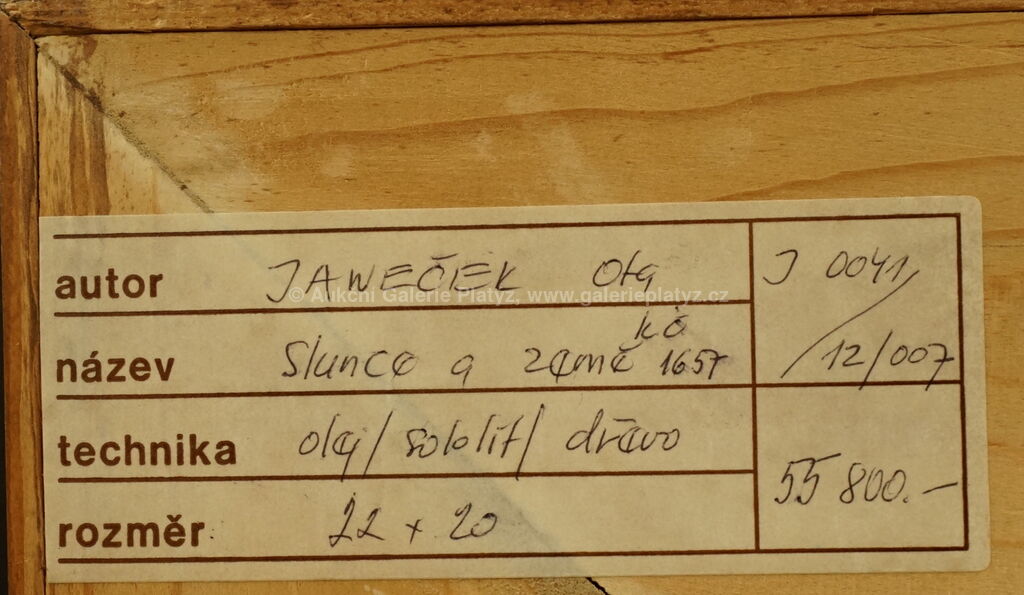 autor JANEČEK Ota J 0041/
© Aukční Galerie Platýz, www.galerieplatyz.cz
kč
název Slunce a země 1657 /12/007
technika olej/sololit/dřevo
55 800.-
rozměr 22 x 20